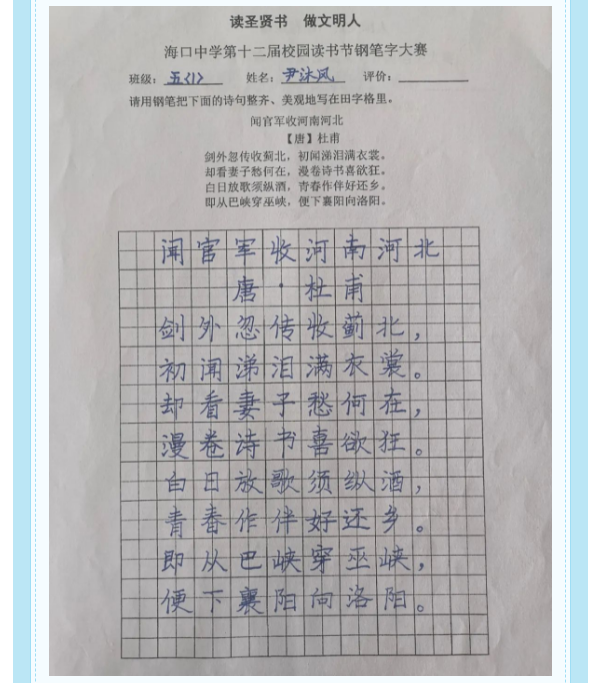 读圣贤书　做文明人
海口中学第十二届校园读书节钢笔字大赛
班级：五<1>　姓名：尹沐凤　评价：
请用钢笔把下面的诗句整齐、美观地写在田字格里。
闻官军收河南河北
【唐】杜甫
剑外忽传收蓟北，初闻涕泪满衣裳。
却看妻子愁何在，漫卷诗书喜欲狂。
白日放歌须纵酒，青春作伴好还乡。
即从巴峡穿巫峡，便下襄阳向洛阳。
闻官军收河南河北
唐·杜甫
剑外忽传收蓟北，
初闻涕泪满衣裳。
却看妻子愁何在，
漫卷诗书喜欲狂。
白日放歌须纵酒，
青春作伴好还乡。
即从巴峡穿巫峡，
便下襄阳向洛阳。